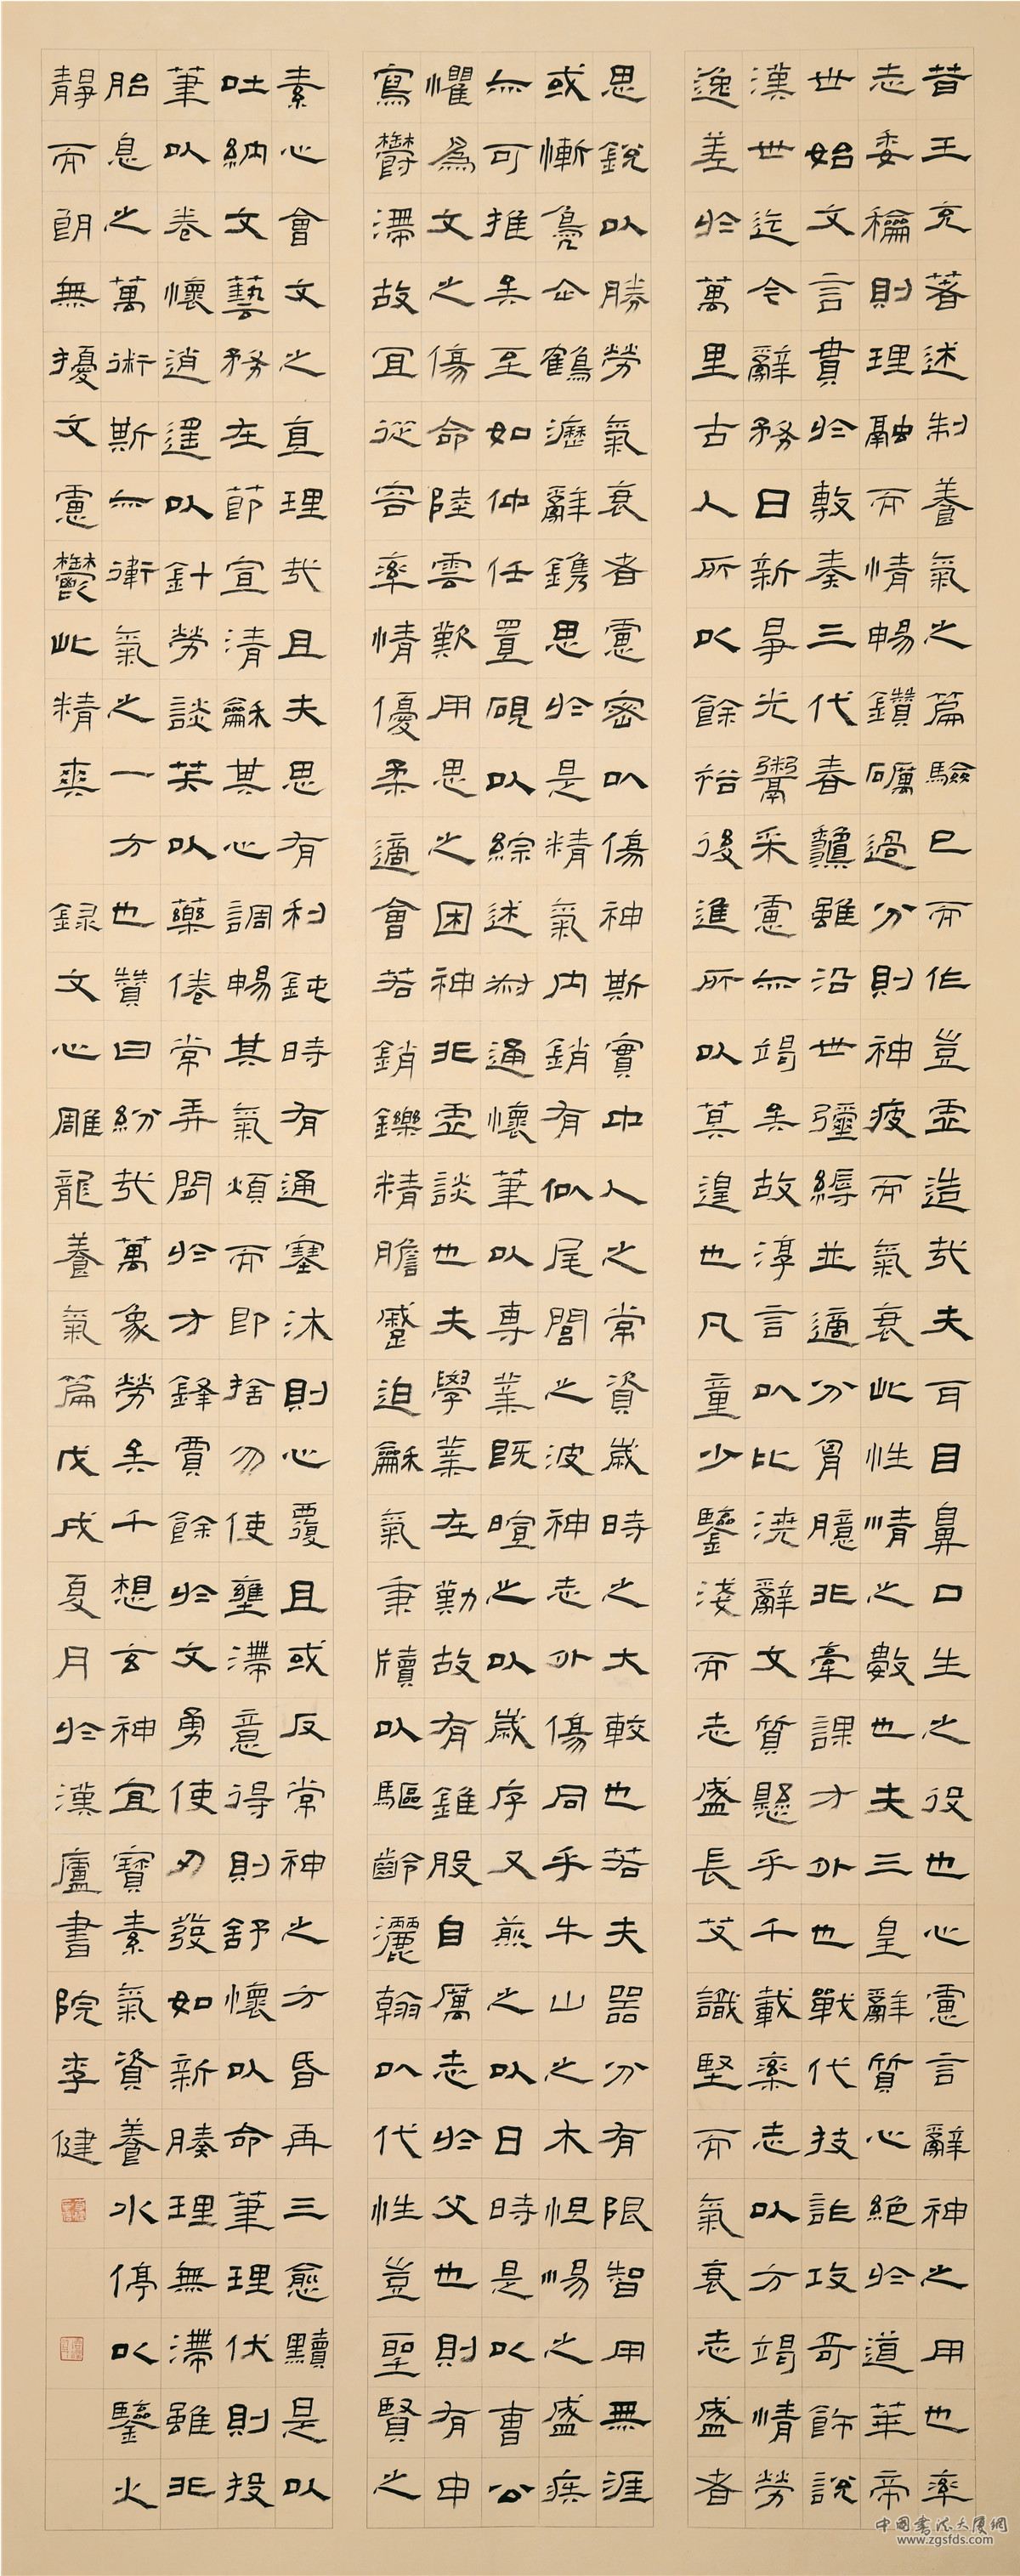 昔王充著述制養氣之篇驗已而作豈虛造哉夫耳目鼻口生之役也心慮言辭神之用也率
志委龢則理融而情暢鑽礪過分則神疲而氣衰此性情之數也夫三皇辭質心絕於道華帝
世始文言貴於敷奏三代春龝雖沿世彌縟並適分胷臆非牽課才外也戰代技詐攻奇飾說
漢世迄今辭務日新爭光鬻采慮無竭矣故淳言以比澆辭文質懸乎千載率志以方竭情勞
逸差於萬里古人所以餘裕後進所以莫遑也凡童少鑒淺而志盛長艾識堅而氣衰志盛者
思銳以勝勞氣衰者慮密以傷神斯實中人之常資歲時之大較也若夫器分有限智用無涯
或慚鳧企鶴瀝辭鐫思於是精氣內銷有似尾閭之波神志外傷同乎牛山之木怛惕之盛疾
無可推矣至如仲任置硯以綜述叔通懷筆以專業既暄之以歲序又煎之以日時是以曹公
懼為文之傷命陸雲歎用思之困神非虛談也夫學業在勤故有錐股自厲志於文也則有申
寫鬱滯故宜從容率情優柔適會若銷鑠精膽蹙迫龢氣秉牘以驅齡灑翰以伐性豈聖賢之
素心會文之直理哉且夫思有利鈍時有通塞沐則心覆且或反常神之方昏再三愈黷是以
吐納文藝務在節宣清龢其心調暢其氣煩而即捨勿使壅滯意得則舒懷以命筆理伏則投
筆以卷懷逍遙以針勞談笑以藥倦常弄閑於才鋒賈餘於文勇使刃發如新腠理無滯雖非
胎息之萬術斯無衛氣之一方也贊曰紛哉萬象勞矣千想玄神宜寶素氣資養水停以鑒火
靜而朗無擾文慮鬱此精爽 錄文心雕龍養氣篇戊戌夏月於漢廬書院李健
中国书法大厦網
www.zgsfds.com